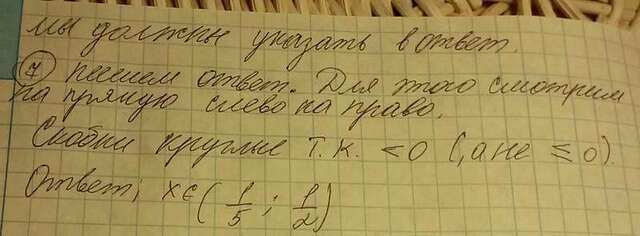 мы должны указать в ответ.
⑦ пишем ответ. Для этого смотрим
на прямую слево на право.
Скобки круглые т.к. <0 (, а не ≤0).
Ответ; x∈(1/5; 1/2)